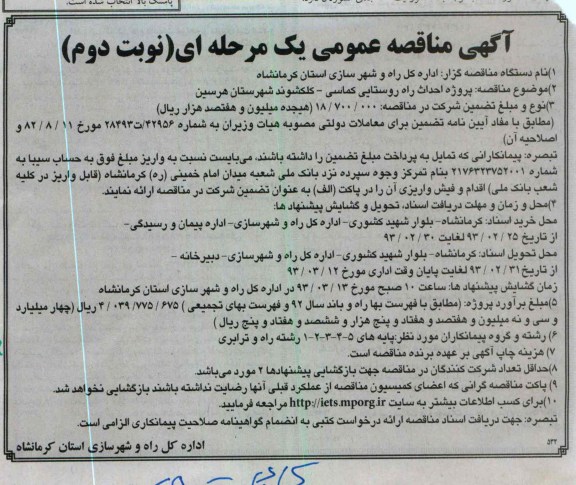 پاسگاه بالا انتخاب شده است.
آگهی مناقصه عمومی یک مرحله ای(نوبت دوم)
۱)نام دستگاه مناقصه گزار: اداره کل راه و شهر سازی استان کرمانشاه
۲)موضوع مناقصه: پروژه احداث راه روستایی کماسی - گلکشوند شهرستان هرسین
۳)نوع و مبلغ تضمین شرکت در مناقصه: ۱۸/۷۰۰/۰۰۰ (هیجده میلیون و هفتصد هزار ریال)
(مطابق با مفاد آیین نامه تضمین برای معاملات دولتی مصوبه هیات وزیران به شماره ۴۲۹۵۶/ت۲۸۴۹۳ مورخ ۸۲/۸/۱۱ و
اصلاحیه آن)
تبصره: پیمانکارانی که تمایل به پرداخت مبلغ تضمین را داشته باشند، می‌بایست نسبت به واریز مبلغ فوق به حساب سیبا به
شماره ۲۱۷۶۳۲۳۷۵۲۰۰۱ بنام تمرکز وجوه سپرده نزد بانک ملی شعبه میدان امام خمینی (ره) کرمانشاه (قابل واریز در کلیه
شعب بانک ملی) اقدام و فیش واریزی آن را در پاکت (الف) به عنوان تضمین شرکت در مناقصه ارائه نمایند.
۴)محل و زمان و مهلت دریافت اسناد، تحویل و گشایش پیشنهاد ها:
محل خرید اسناد: کرمانشاه- بلوار شهید کشوری- اداره کل راه و شهرسازی- اداره پیمان و رسیدگی-
از تاریخ ۹۳/۰۲/۲۵ لغایت ۹۳/۰۲/۳۰
محل تحویل اسناد: کرمانشاه- بلوار شهید کشوری- اداره کل راه و شهرسازی- دبیرخانه -
از تاریخ ۹۳/۰۲/۳۱ لغایت پایان وقت اداری مورخ ۹۳/۰۳/۱۲
زمان گشایش پیشنهاد ها: ساعت ۱۰ صبح مورخ ۹۳/۰۳/۱۳ در اداره کل راه و شهر سازی استان کرمانشاه
۵)مبلغ برآورد پروژه: (مطابق با فهرست بها راه و باند سال ۹۲ و فهرست بهای تجمیعی ) ۴/۰۳۹/۷۷۵/۶۷۵ ریال (چهار میلیارد
و سی و نه میلیون و هفتصد و هفتاد و پنج هزار و ششصد و هفتاد و پنج ریال )
۶) رشته و گروه پیمانکاران مورد نظر:پایه های ۵-۴-۳-۲-۱ رشته راه و ترابری
۷) هزینه چاپ آگهی بر عهده برنده مناقصه است.
۸)حداقل تعداد شرکت کنندگان در مناقصه جهت بازگشایی پیشنهادها ۲ مورد می‌باشد.
۹) پاکت مناقصه گرانی که اعضای کمیسیون مناقصه از عملکرد قبلی آنها رضایت نداشته باشند بازگشایی نخواهد شد.
۱۰)برای کسب اطلاعات بیشتر به سایت http://iets.mporg.ir مراجعه فرمایید.
تبصره: جهت دریافت اسناد مناقصه ارائه درخواست کتبی به انضمام گواهینامه صلاحیت پیمانکاری الزامی است.
اداره کل راه و شهرسازی استان کرمانشاه
۵۳۲